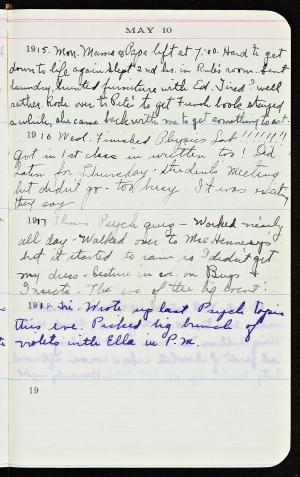 MAY 10
1915. Mon. Mama & Papa left at 7:00. Hard to get
down to life again. Slept 2nd hr. in Rub's room. Sent
laundry, hunted furniture with Ed. Tired? well
rather. Rode over to Pete's to get French book stayed
a while, she came back with me to get something to eat.
1916 Wed. Finished Physics Lab !!!!!!!
Got in 1st class in written too! Did
Latin for Thursday - students' meeting
but didn't go - too busy. It was
they say
1917 Psych quiz - Worked nearly
all day - Walked over to Mrs Hennesey's
but it started to rain so I didn't get
my dress - Lecture in eve. on Bugs &
Insects. "The eve of the big event".
191 Fri. Wrote up last Psych topic
this eve. Picked big bunch of
violets with Ella in P.M.
19